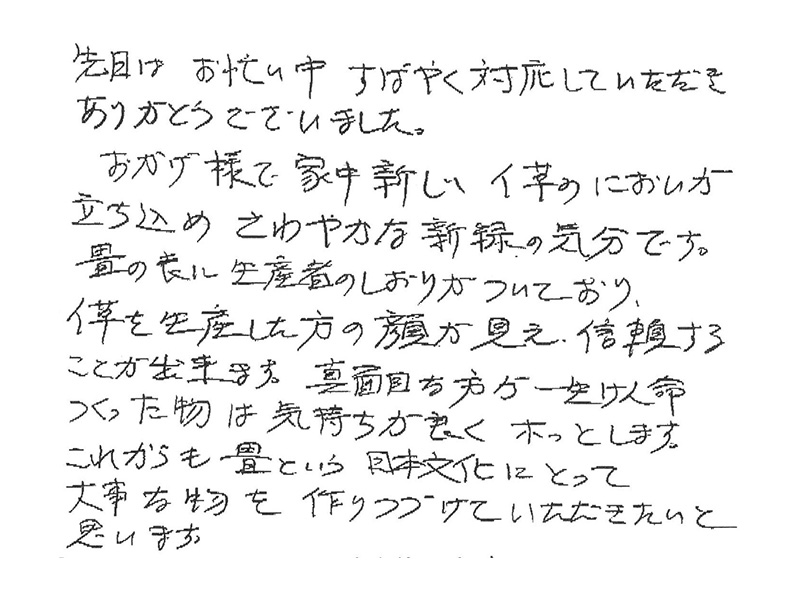 先日は お忙い中 すばやく対応していただき
ありがとうございました。
おかげ様で 家中 新しい イ草の においが
立ち込め さわやかな 新緑の気分です。
畳の表に 生産者のしおりがついており、
イ草を生産した方の顔が見え、信頼する
ことが出来ます。真面目な方が一生けん命
つくった物は気持ちが良く ホッとします。
これからも 畳という 日本文化にとって
大事な物を 作りつづけていただきたいと
思います。